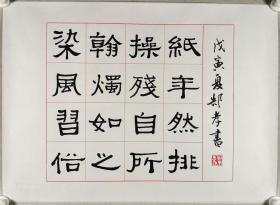 染翰操紙
風燭殘年
習如自然
俗之所排
戊寅夏郝孝書